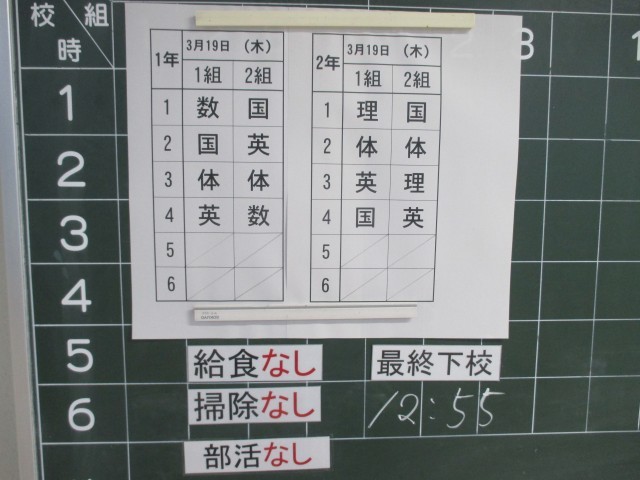 校 組
時
1
2
3
4
5
6
8
1
1年 3月19日 （木）
1組 2組
1 数 国
2 国 英
3 体 体
4 英 数
5
6
2年 3月19日 （木）
1組 2組
1 理 国
2 体 体
3 英 理
4 国 英
5
6
給食なし
掃除なし
部活なし
最終下校
12:55